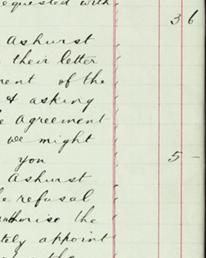 equested with
3 6
Ashurst
their letter
ment of the
& asking
Agreement
we might
you
5 –
Ashurst
refusal
authorise the
tely appoint
the